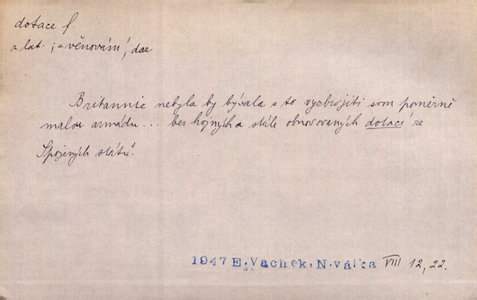 dotace f.
z lat. ; = věnování, dar
Britannie nebyla by bývala s to vyzbrojiti svou poměrně
malou armádu... bez hojných a stále obnovovaných dotací ze
Spojených států.
1947 E. Vachek, N. válka VIII 12, 22.